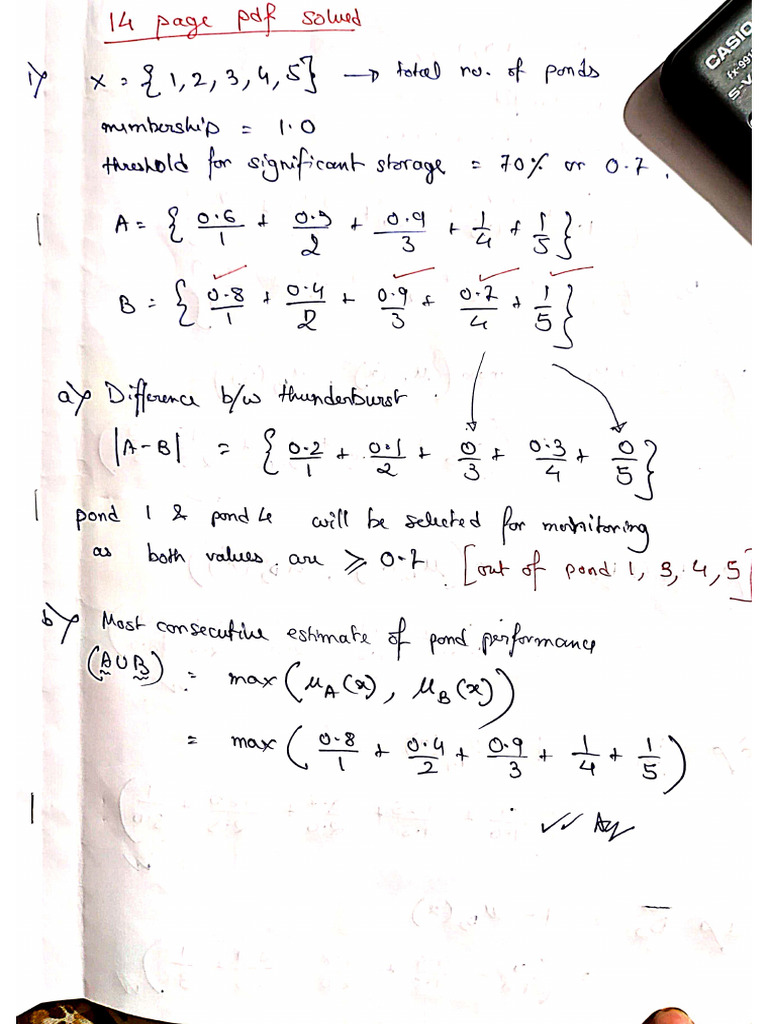 14 page pdf solved
1) X = {1, 2, 3, 4, 5} → total no. of ponds
membership = 1.0
threshold for significant storage = 70% or 0.7.
A = { 0.6/1 + 0.3/2 + 0.9/3 + 1/4 + 1/5 }
B = { 0.8/1 + 0.4/2 + 0.9/3 + 0.7/4 + 1/5 }
a) Difference b/w thunderburst
|A-B| = { 0.2/1 + 0.1/2 + 0/3 + 0.3/4 + 0/5 }
pond 1 & pond 4 will be selected for monitoring
as both values are ≥ 0.7 [out of pond 1, 3, 4, 5]
b) Most consecutive estimate of pond performance
(A∪B) = max(μA(x), μB(x))
= max( 0.8/1 + 0.4/2 + 0.9/3 + 1/4 + 1/5 )
✓✓
CASIO
fx-991